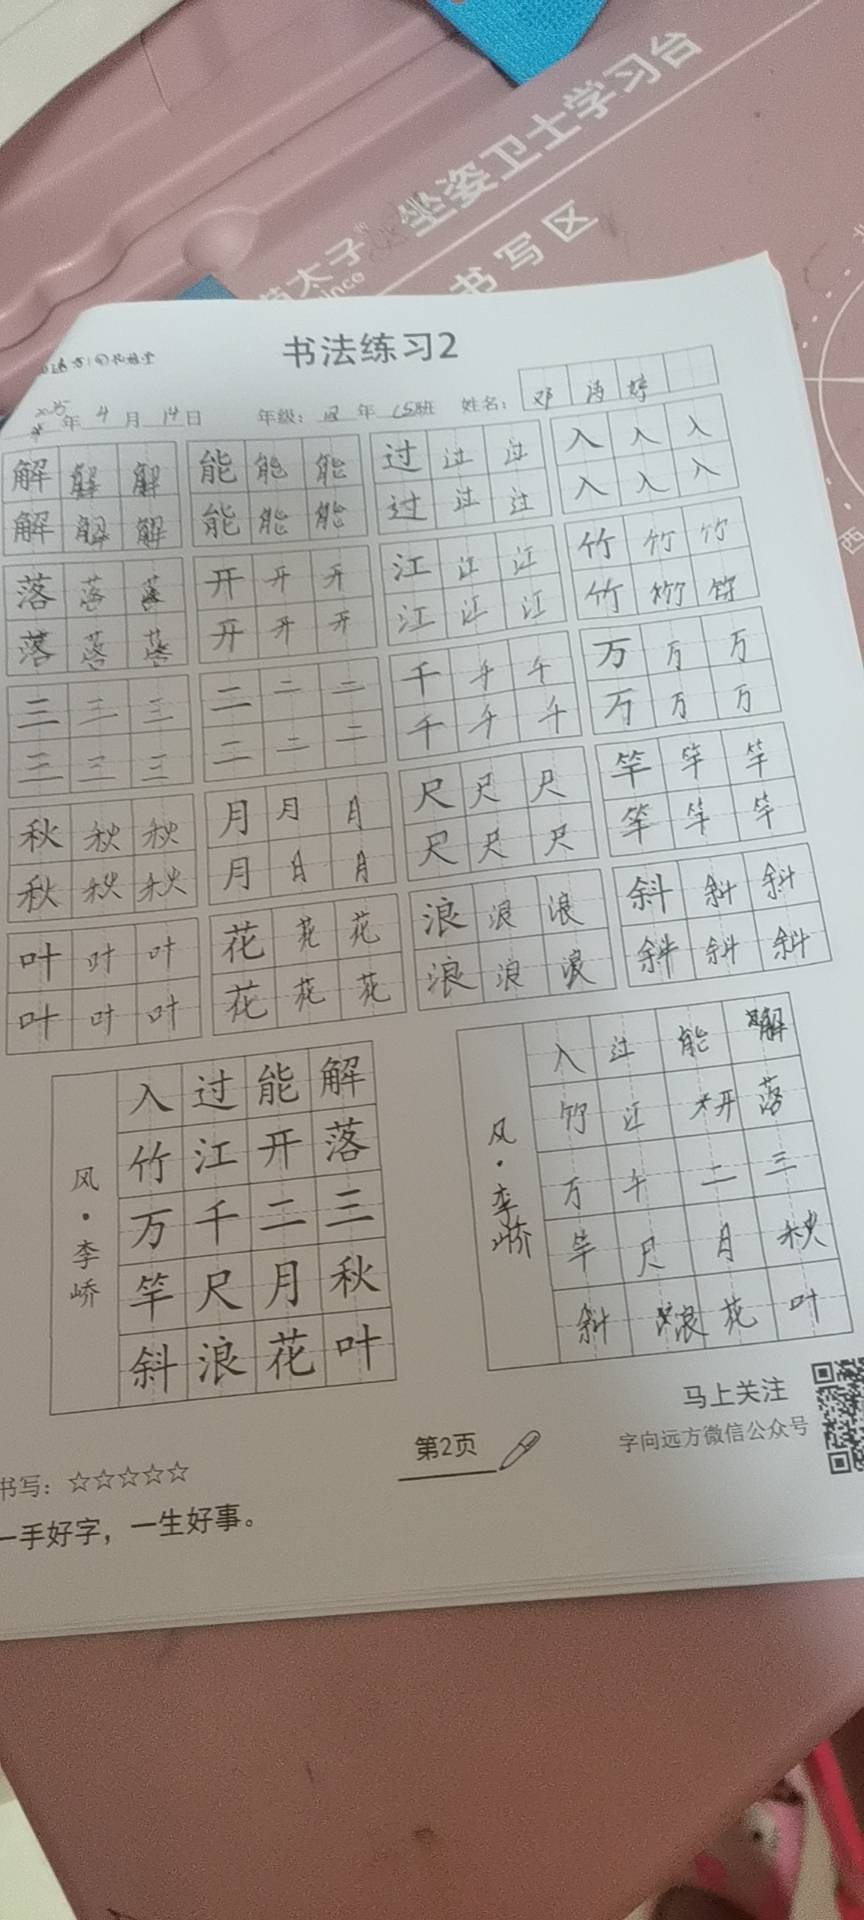 坐姿卫士学习台
太子
书写区
书法练习2
2025年4月14日 年级：四年(5)班 姓名：邓 婷
解解解 能能能 过过过 入入入
解解解 能能能 过过过 入入入
落落落 开开开 江江江 竹竹竹
落落落 开开开 江江江 竹竹竹
三三三 二二二 千千千 万万万
三三三 二二二 千千千 万万万
秋秋秋 月月月 尺尺尺 竿竿竿
秋秋秋 月月月 尺尺尺 竿竿竿
叶叶叶 花花花 浪浪浪 斜斜斜
叶叶叶 花花花 浪浪浪 斜斜斜
风·李峤
入过能解
竹江开落
万千二三
竿尺月秋
斜浪花叶
风·李峤
入过能解
竹江开落
万千二三
竿尺月秋
斜浪花叶
马上关注
字向远方微信公众号
第2页
书写：☆☆☆☆☆
一手好字，一生好事。
西